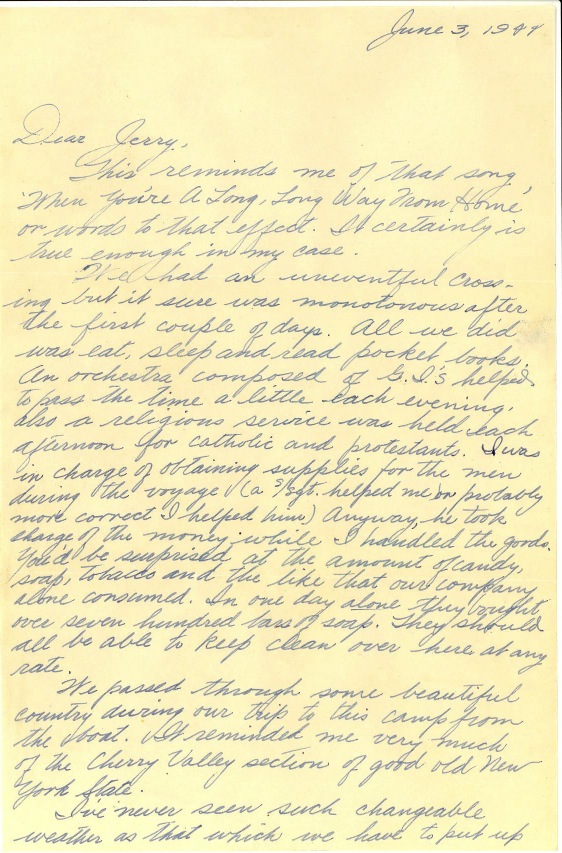 June 3, 1944
Dear Jerry,
This reminds me of that song
'When You're A Long, Long Way From Home'
or words to that effect. It certainly is
true enough in my case.
We had an uneventful cross-
ing but it sure was monotonous after
the first couple of days. All we did
was eat, sleep and read pocket books.
An orchestra composed of G.I.'s helped
to pass the time a little each evening,
also a religious service was held each
afternoon for catholic and protestants. I was
in charge of obtaining supplies for the men
during the voyage (a S/Sgt. helped me or probably
more correct I helped him.) Anyway, he took
charge of the money while I handled the goods.
You'd be surprised at the amount of candy,
soap, tobacco and the like that our company
alone consumed. In one day alone they bought
over seven hundred bars of soap. They should
all be able to keep clean over here at any
rate.
We passed through some beautiful
country during our trip to this camp from
the boat. It reminded me very much
of the Cherry Valley section of good old New
York State.
I've never seen such changeable
weather as that which we have to put up